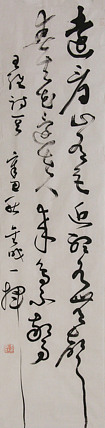 遠看山有色近聽水無聲
春去花還在人來鳥不驚
王維詩 辛丑秋 一揮